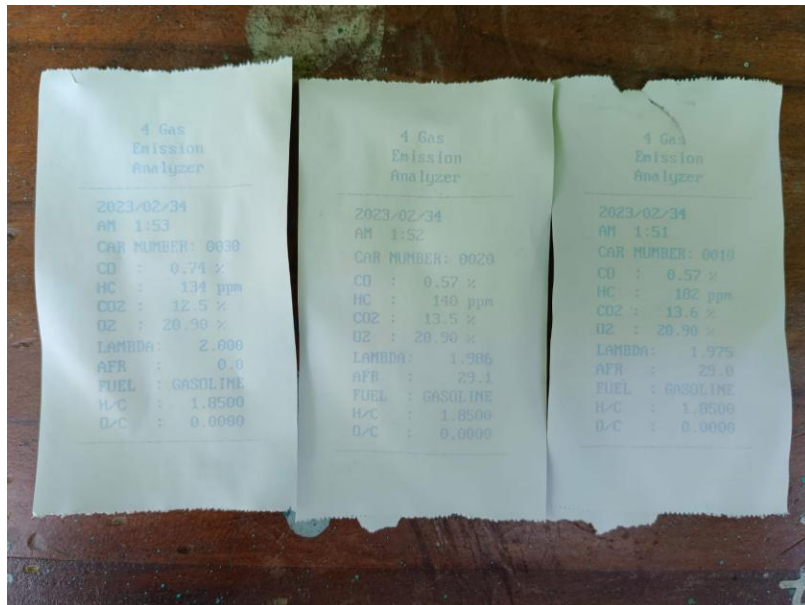 4 Gas
Emission
Analyzer
2023/02/34
AM 1:53
CAR NUMBER: 0030
CO : 0.74 %
HC : 134 ppm
CO2 : 12.5 %
O2 : 20.90 %
LAMBDA: 2.000
AFR : 0.0
FUEL : GASOLINE
H/C : 1.8500
O/C : 0.0000
4 Gas
Emission
Analyzer
2023/02/34
AM 1:52
CAR NUMBER: 0020
CO : 0.57 %
HC : 140 ppm
CO2 : 13.5 %
O2 : 20.90 %
LAMBDA: 1.986
AFR : 29.1
FUEL : GASOLINE
H/C : 1.8500
O/C : 0.0000
4 Gas
Emission
Analyzer
2023/02/34
AM 1:51
CAR NUMBER: 0010
CO : 0.57 %
HC : 182 ppm
CO2 : 13.6 %
O2 : 20.90 %
LAMBDA: 1.975
AFR : 29.0
FUEL : GASOLINE
H/C : 1.8500
O/C : 0.0000